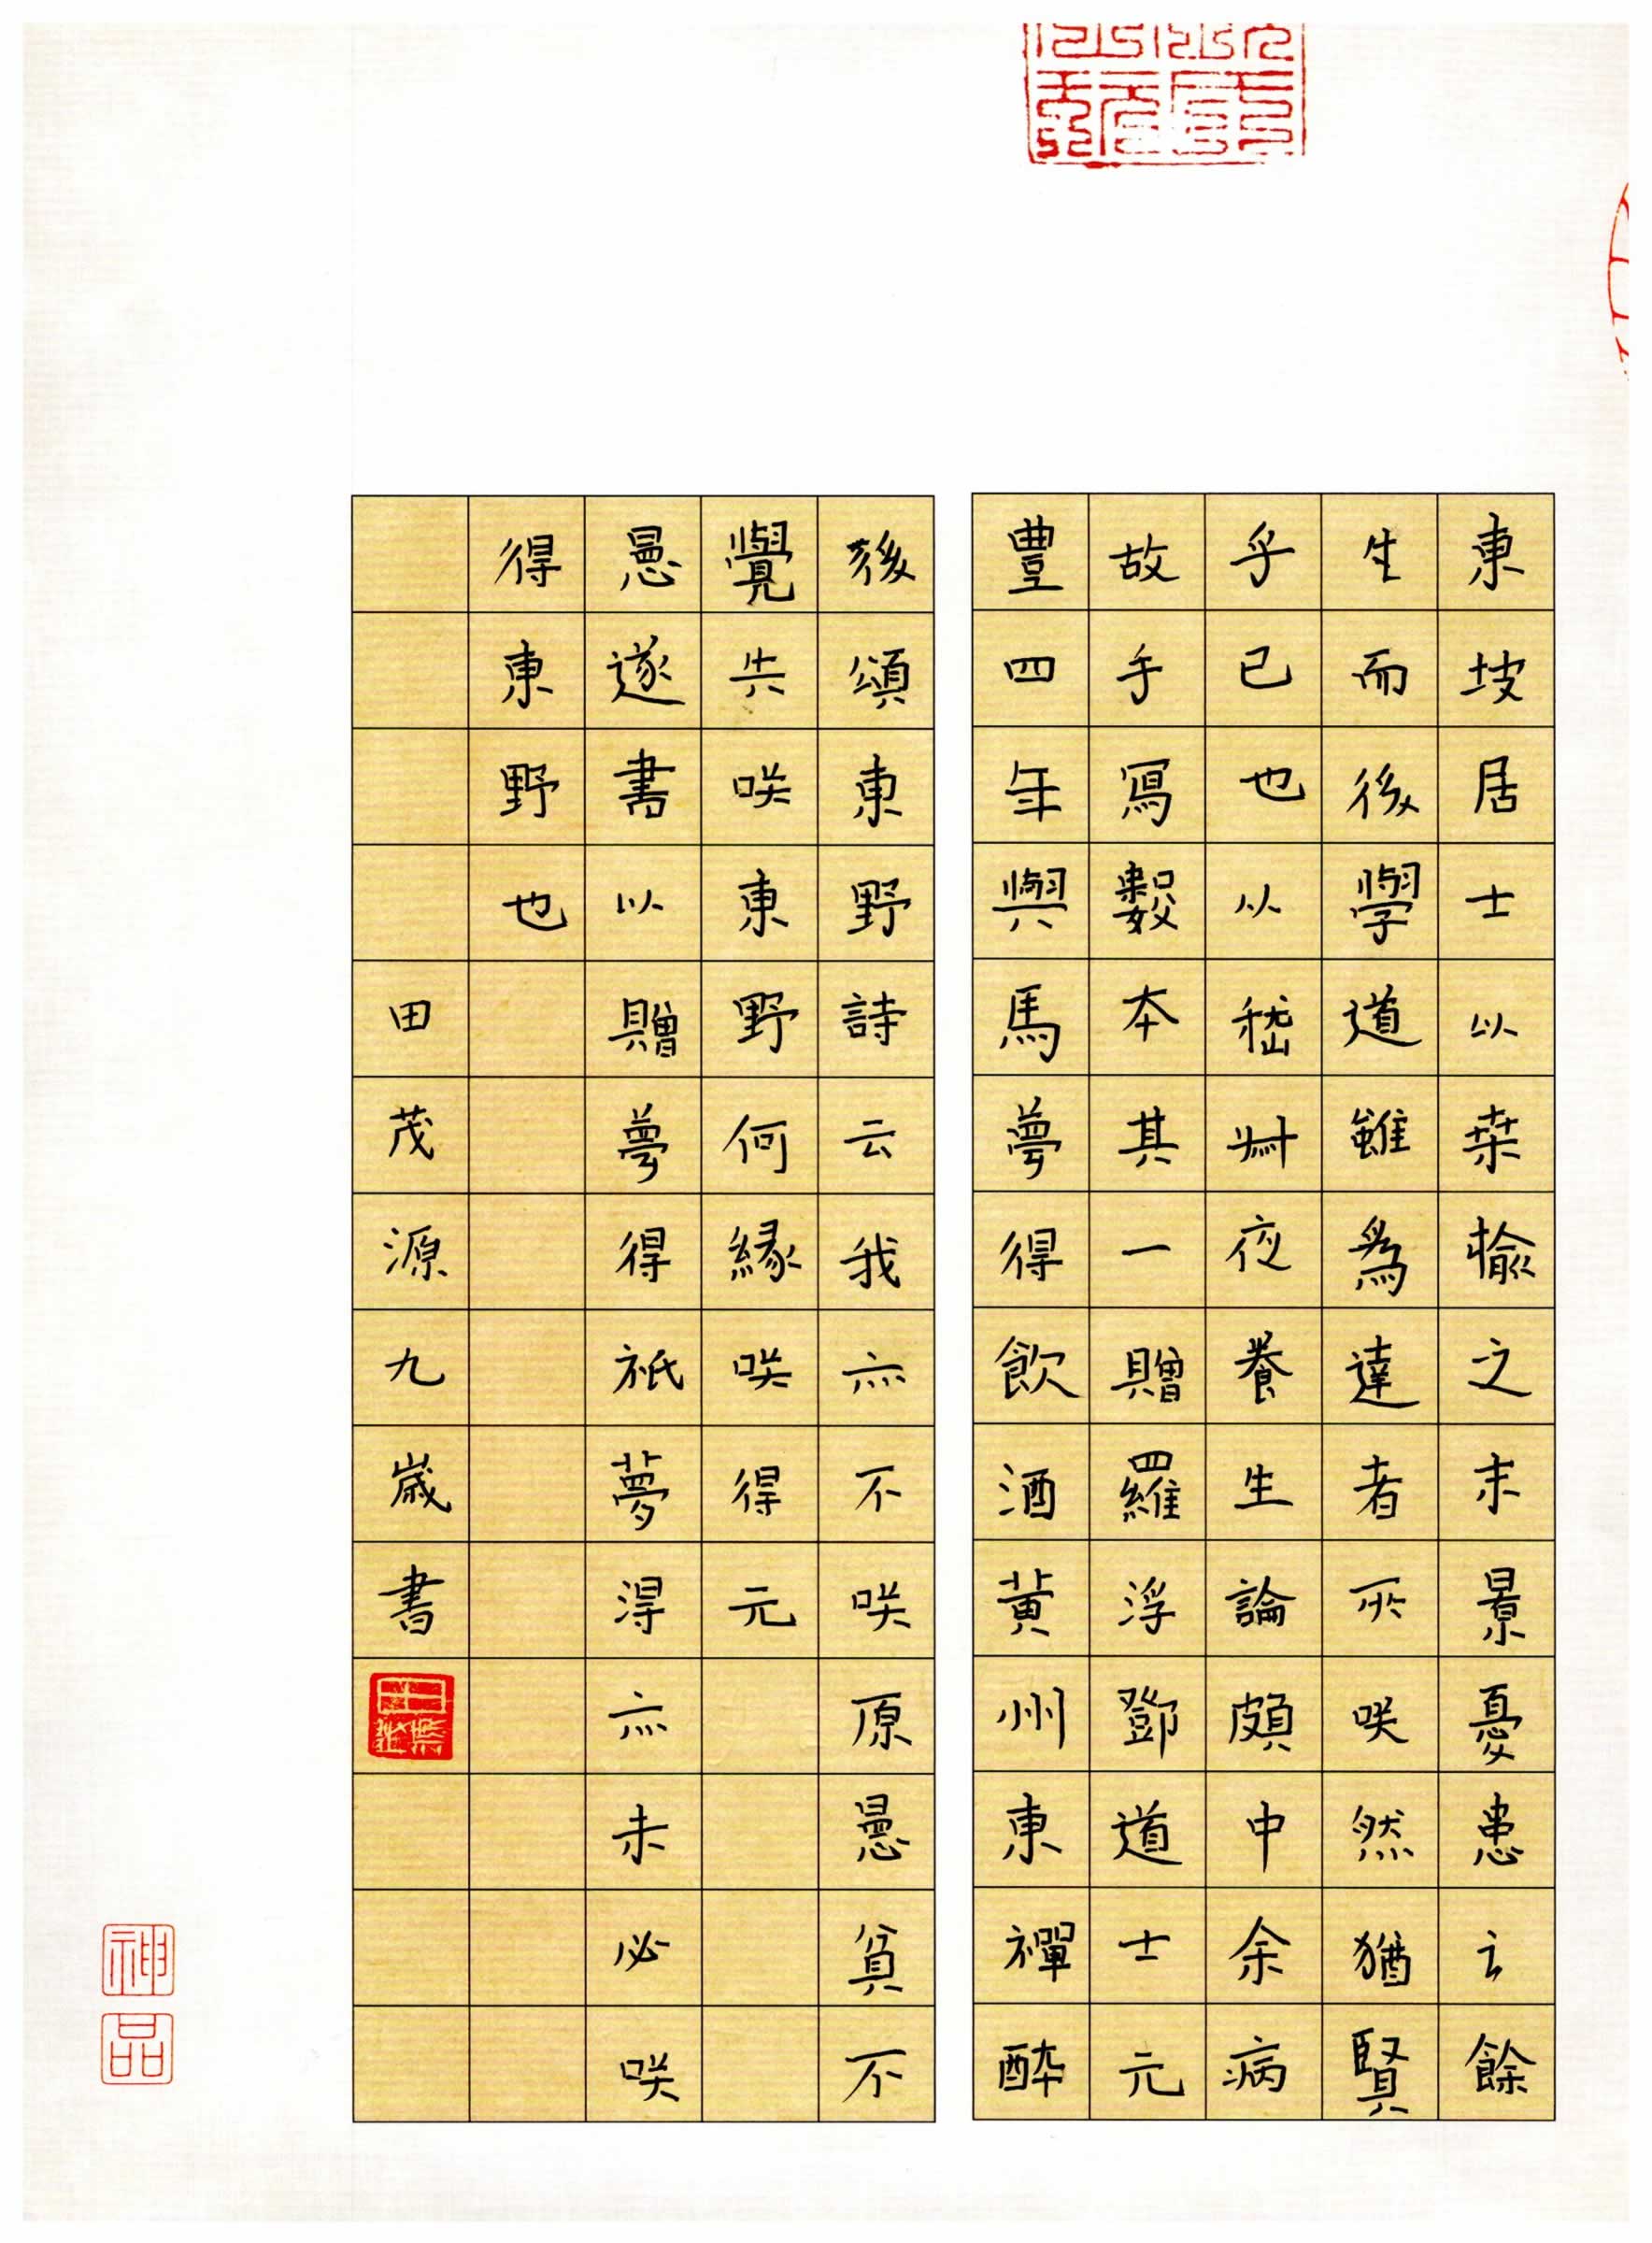 東坡居士以桑榆之末景憂患之餘
生而後學道雖為達者所咲然猶賢
乎已也以嵇叔夜養生論頗中余病
故手寫數本其一贈羅浮鄧道士元
豐四年與馬夢得飲酒黃州東禪醉
後頌東野詩云我亦不咲原憲貧不
覺失咲東野何緣咲得元
憲遂書以贈夢得祇夢得亦未必咲
得東野也
田茂源九歲書
神品